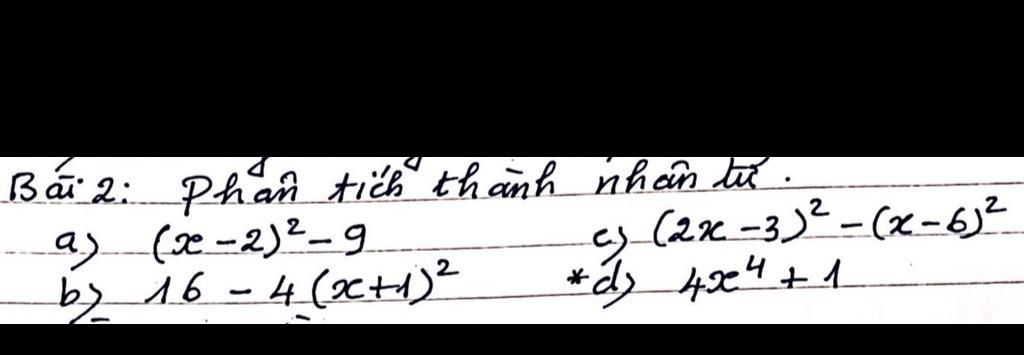 Bài 2: Phân tích thành nhân tử.
a) (x-2)² - 9 c) (2x-3)² - (x-6)²
b) 16 - 4(x+1)² *d) 4x⁴ + 1